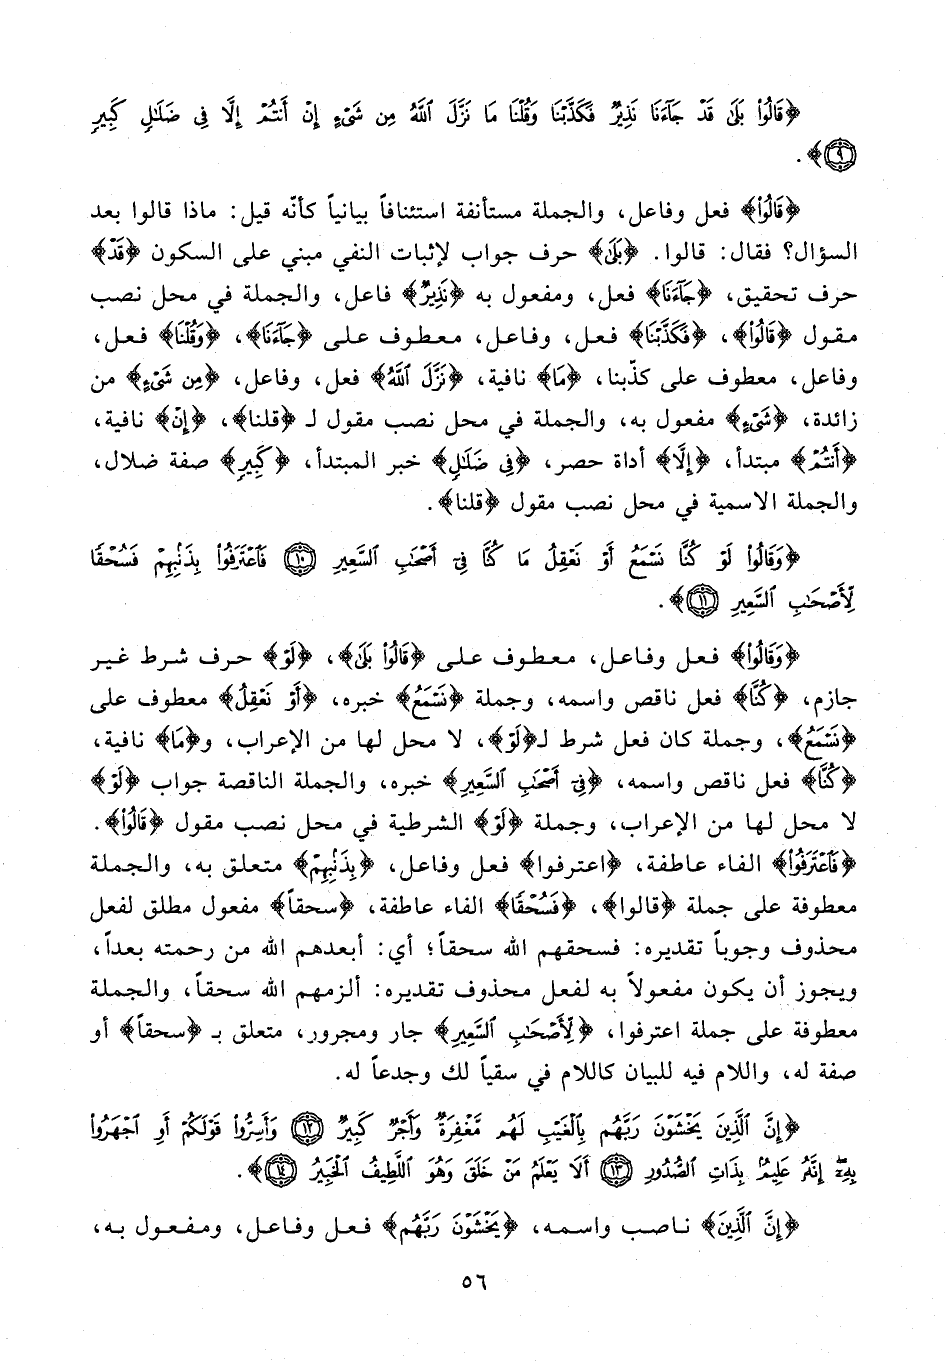 ﴿قَالُوا۟ بَلَىٰ قَدْ جَآءَنَا نَذِيرٌ فَكَذَّبْنَا وَقُلْنَا مَا نَزَّلَ ٱللَّهُ مِن شَىْءٍ إِنْ أَنتُمْ إِلَّا فِى ضَلَـٰلٍ كَبِيرٍ
٩﴾.
﴿قَالُوا۟﴾ فعل وفاعل، والجملة مستأنفة استئنافاً بيانياً كأنّه قيل: ماذا قالوا بعد
السؤال؟ فقال: قالوا. ﴿بَلَىٰ﴾ حرف جواب لإثبات النفي مبني على السكون ﴿قَدْ﴾
حرف تحقيق، ﴿جَآءَنَا﴾ فعل، ومفعول به ﴿نَذِيرٌ﴾ فاعل، والجملة في محل نصب
مقول ﴿قَالُوا۟﴾، ﴿فَكَذَّبْنَا﴾ فعل، وفاعل، معطوف على ﴿جَآءَنَا﴾، ﴿وَقُلْنَا﴾ فعل،
وفاعل، معطوف على كذّبنا، ﴿مَا﴾ نافية، ﴿نَزَّلَ ٱللَّهُ﴾ فعل، وفاعل، ﴿مِن شَىْءٍ﴾ من
زائدة، ﴿شَىْءٍ﴾ مفعول به، والجملة في محل نصب مقول لـ ﴿قلنا﴾، ﴿إِنْ﴾ نافية،
﴿أَنتُمْ﴾ مبتدأ، ﴿إِلَّا﴾ أداة حصر، ﴿فِى ضَلَـٰلٍ﴾ خبر المبتدأ، ﴿كَبِيرٍ﴾ صفة ضلال،
والجملة الاسمية في محل نصب مقول ﴿قلنا﴾.
﴿وَقَالُوا۟ لَوْ كُنَّا نَسْمَعُ أَوْ نَعْقِلُ مَا كُنَّا فِىٓ أَصْحَـٰبِ ٱلسَّعِيرِ ١٠ فَٱعْتَرَفُوا۟ بِذَنۢبِهِمْ فَسُحْقًا
لِّأَصْحَـٰبِ ٱلسَّعِيرِ ١١﴾.
﴿وَقَالُوا۟﴾ فعل وفاعل، معطوف على ﴿قَالُوا۟ بَلَىٰ﴾، ﴿لَوْ﴾ حرف شرط غير
جازم، ﴿كُنَّا﴾ فعل ناقص واسمه، وجملة ﴿نَسْمَعُ﴾ خبره، ﴿أَوْ نَعْقِلُ﴾ معطوف على
﴿نَسْمَعُ﴾، وجملة كان فعل شرط لـ﴿لَوْ﴾، لا محل لها من الإعراب، و﴿مَا﴾ نافية،
﴿كُنَّا﴾ فعل ناقص واسمه، ﴿فِىٓ أَصْحَـٰبِ ٱلسَّعِيرِ﴾ خبره، والجملة الناقصة جواب ﴿لَوْ﴾
لا محل لها من الإعراب، وجملة ﴿لَوْ﴾ الشرطية في محل نصب مقول ﴿قَالُوا۟﴾.
﴿فَٱعْتَرَفُوا۟﴾ الفاء عاطفة، ﴿اعترفوا﴾ فعل وفاعل، ﴿بِذَنۢبِهِمْ﴾ متعلق به، والجملة
معطوفة على جملة ﴿قالوا﴾، ﴿فَسُحْقًا﴾ الفاء عاطفة، ﴿سحقاً﴾ مفعول مطلق لفعل
محذوف وجوباً تقديره: فسحقهم الله سحقاً؛ أي: أبعدهم الله من رحمته بعداً،
ويجوز أن يكون مفعولاً به لفعل محذوف تقديره: ألزمهم الله سحقاً، والجملة
معطوفة على جملة اعترفوا، ﴿لِّأَصْحَـٰبِ ٱلسَّعِيرِ﴾ جار ومجرور، متعلق بـ ﴿سحقاً﴾ أو
صفة له، واللام فيه للبيان كاللام في سقياً لك وجدعاً له.
﴿إِنَّ ٱلَّذِينَ يَخْشَوْنَ رَبَّهُم بِٱلْغَيْبِ لَهُم مَّغْفِرَةٌ وَأَجْرٌ كَبِيرٌ ١٢ وَأَسِرُّوا۟ قَوْلَكُمْ أَوِ ٱجْهَرُوا۟
بِهِۦٓ إِنَّهُۥ عَلِيمٌۢ بِذَاتِ ٱلصُّدُورِ ١٣ أَلَا يَعْلَمُ مَنْ خَلَقَ وَهُوَ ٱللَّطِيفُ ٱلْخَبِيرُ ١٤﴾.
﴿إِنَّ ٱلَّذِينَ﴾ ناصب واسمه، ﴿يَخْشَوْنَ رَبَّهُم﴾ فعل وفاعل، ومفعول به،
٥٦